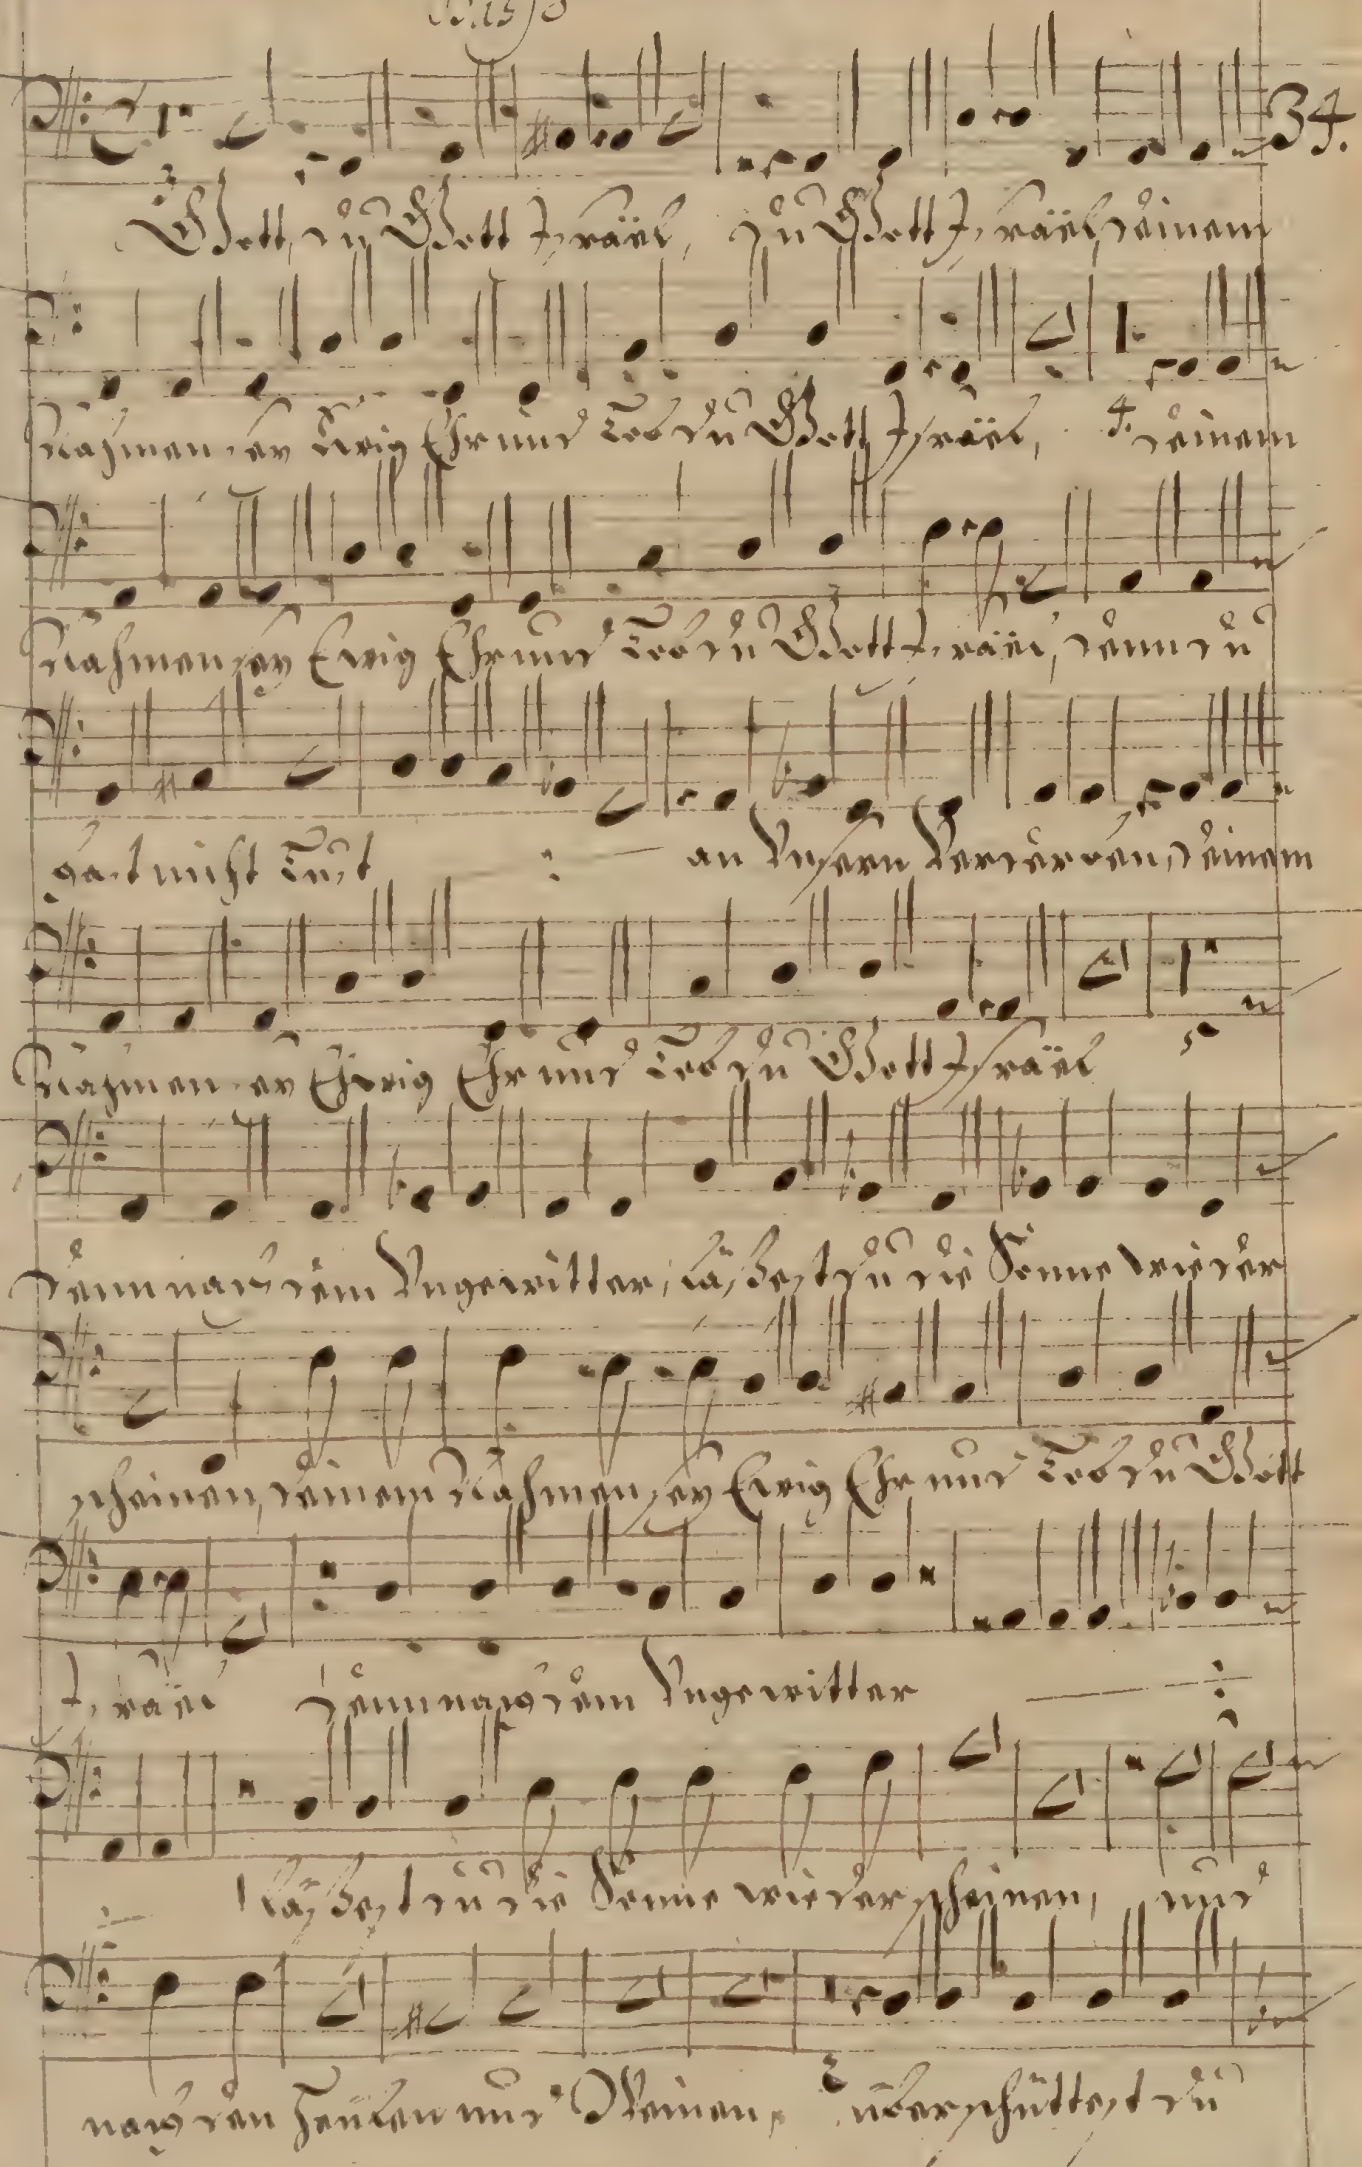 Basso
34.
Gott, du Gott Israël, du Gott Israël, deinem
2
Nahmen sey Ewig Ehr und Lob du Gott Israël, 4. deinem
Nahmen sey Ewig Ehr und Lob du Gott Israël, denn du
hast nicht Lust :— an Unsern Verderben, deinem
Nahmen sey Ewig Ehr und Lob du Gott Israël
5
denn nach dem Ungewitter, läßest du die Sonne wieder
scheinen, deinem Nahmen sey Ewig Ehr und Lob du Gott
Israël denn nach dem Ungewitter —:
läßest du die Sonne wieder scheinen, und
nach den Heulen und Weinen, 2 überschüttest du